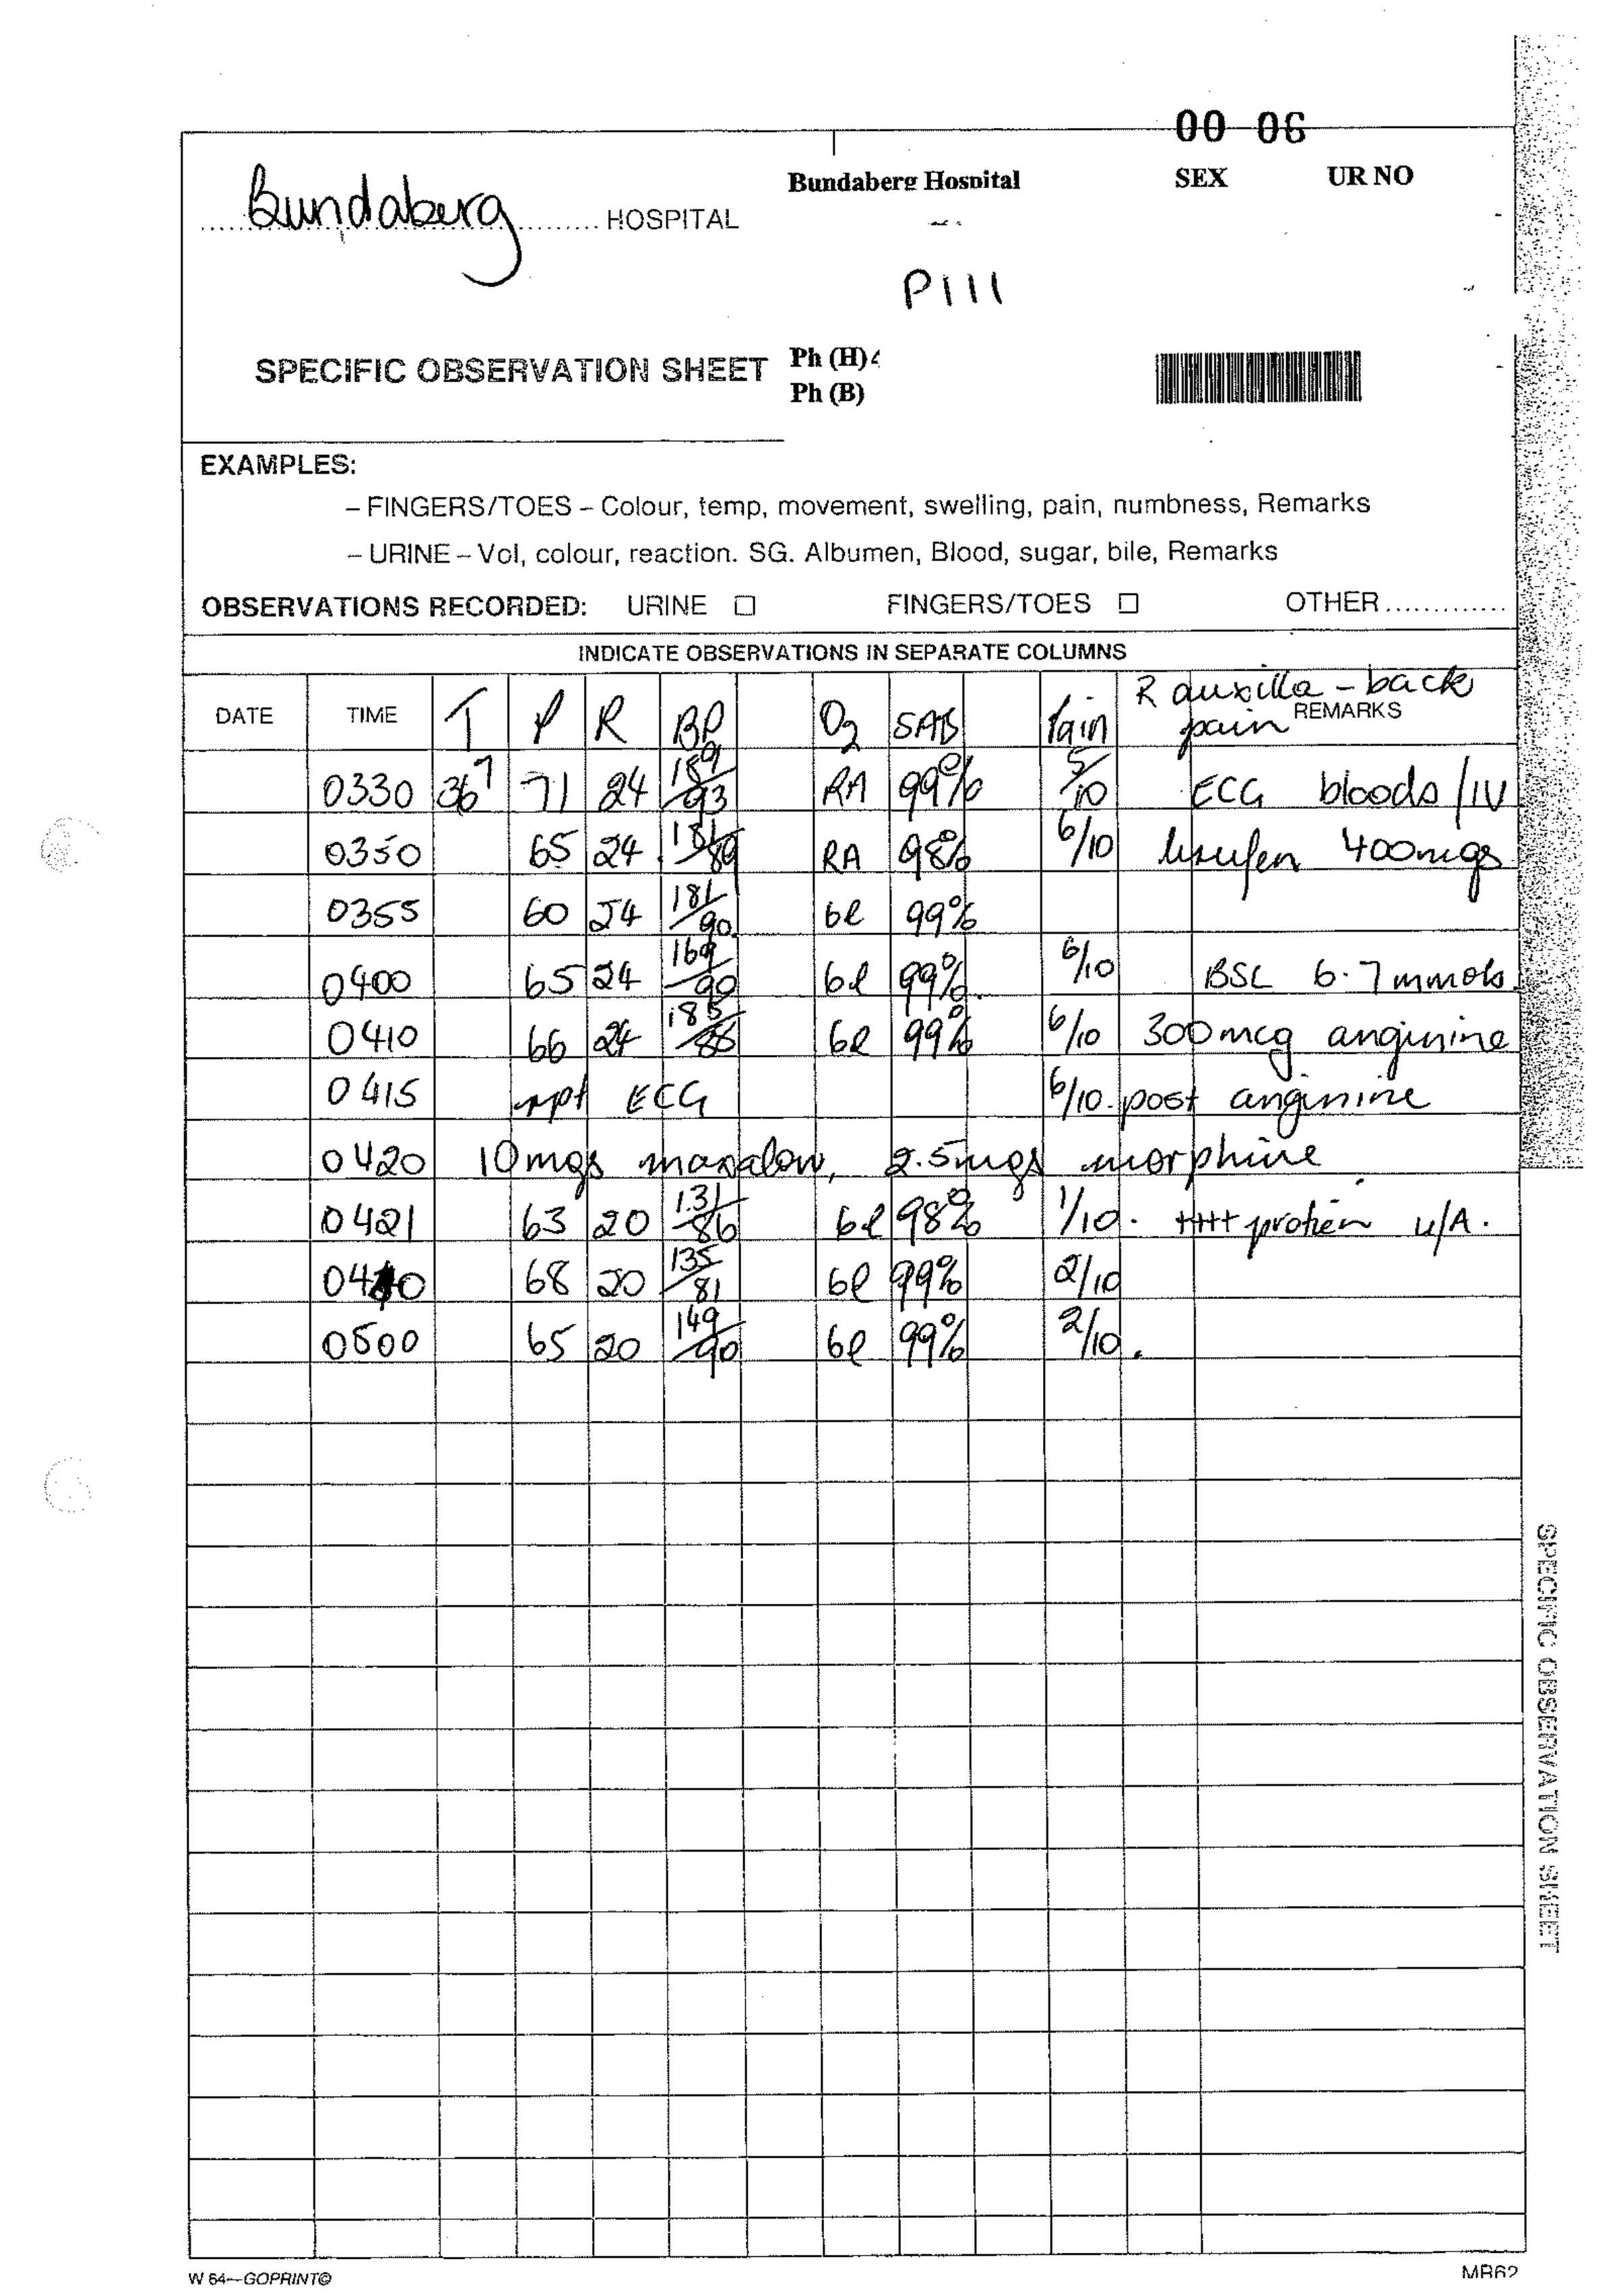 00 06
Bundaberg Hospital SEX UR NO
Bundaberg HOSPITAL
P111
SPECIFIC OBSERVATION SHEET Ph (H)
Ph (B)
EXAMPLES:
– FINGERS/TOES – Colour, temp, movement, swelling, pain, numbness, Remarks
– URINE – Vol, colour, reaction. SG. Albumen, Blood, sugar, bile, Remarks
OBSERVATIONS RECORDED: URINE ☐ FINGERS/TOES ☐ OTHER.............
INDICATE OBSERVATIONS IN SEPARATE COLUMNS
R auxilla – back
DATE TIME T P R BP O2 Pain pain REMARKS
0330 36⁷ 71 24 189/93 RA 99% 5/10 ECG bloods/IV
0350 65 24 /89 RA 98% 6/10 400mgs
0355 60 24 181/90 6l 99%
0400 65 24 169/90 6l 99% 6/10 BSL 6.7 mmols.
0410 66 24 185/88 6l 99% 6/10 300mcg anginine
0415 rpt ECG 6/10. post anginine
0420 10mgs maxalon, 2.5mgs morphine
0421 63 20 131/86 6l 98% 1/10. ++++ protien u/A.
68 20 135/81 6l 99% 2/10
0500 65 20 149/90 6l 99% 2/10.
SPECIFIC OBSERVATION SHEET
W 64—GOPRINT© MR62